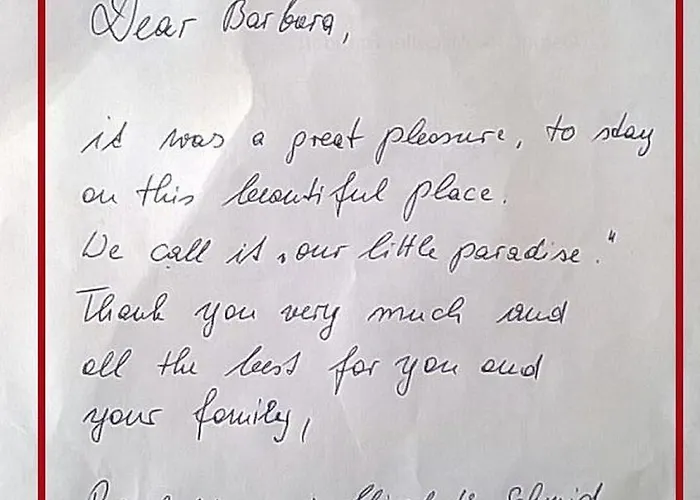 Dear Barbara,
it was a great pleasure, to stay
on this beautiful place.
We call it „our little paradise."
Thank you very much and
all the best for you and
your family,
Schmid